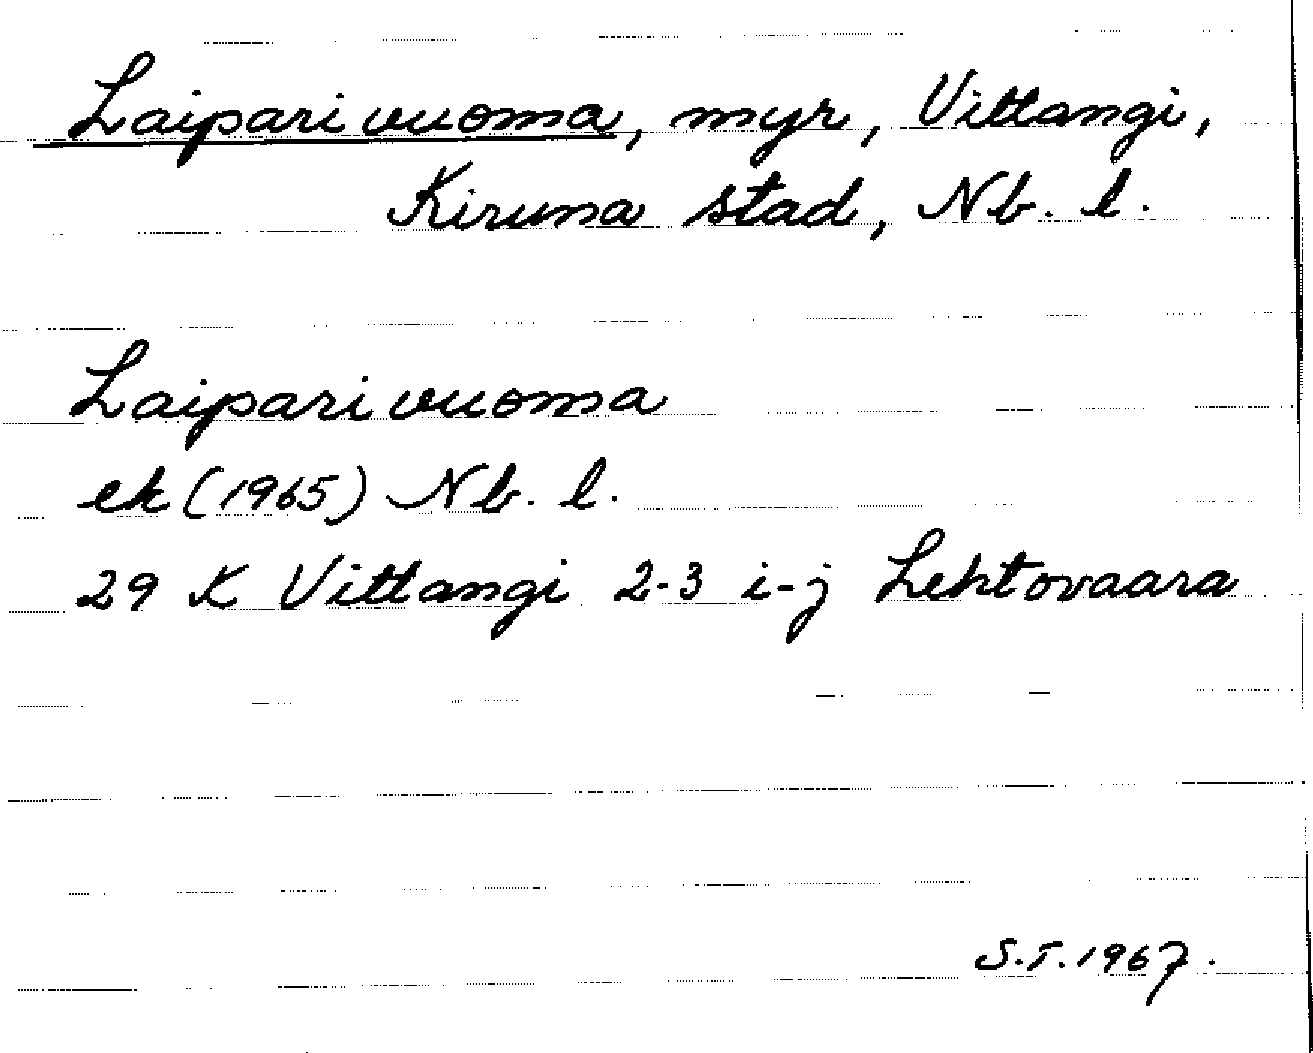 Laiparivuoma, myr, Vittangi,
Kiruna stad, Nb. l.
Laiparivuoma
ek (1965) Nb. l.
29 K Vittangi 2-3 i-j Lehtovaara
S.T. 1967.